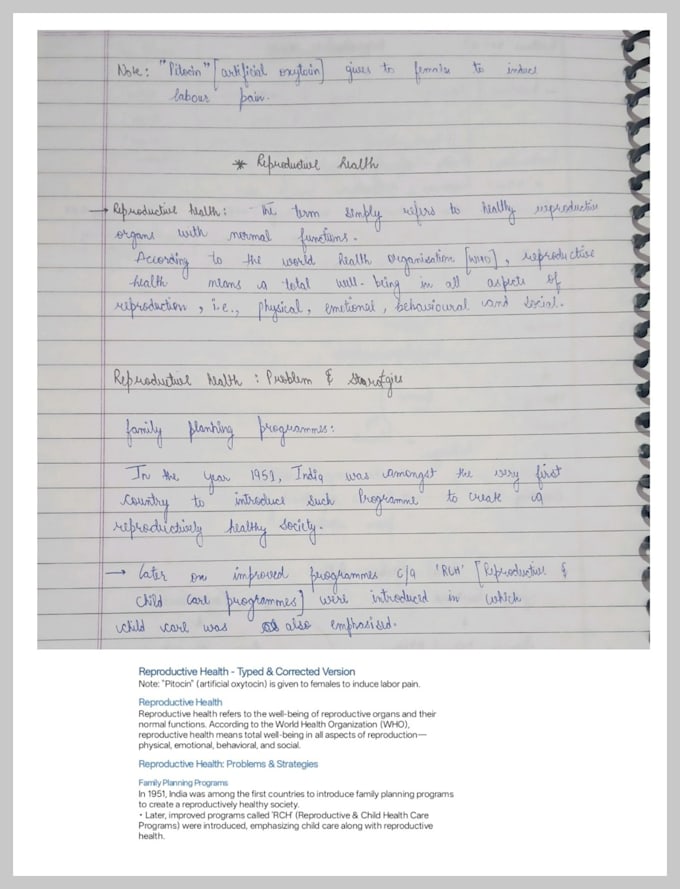 Note: "Pitocin" [artificial oxytocin] gives to females to induce
labour pain.
* Reproductive health
→ Reproductive health: The term simply refers to healthy reproductive
organs with normal functions.
According to the world health organisation [WHO], reproductive
health means a total well-being in all aspects of
reproduction, i.e., physical, emotional, behavioural and social.
Reproductive health : Problem & Starategies
family planning programmes:
In the year 1951, India was amongst the very first
country to introduce such Programme to create a
reproductively healthy society.
→ Later on improved programmes c/a 'RCH' [Reproductive &
child care programmes] were introduced in which
child care was also emphasised.
Reproductive Health - Typed & Corrected Version
Note: "Pitocin" (artificial oxytocin) is given to females to induce labor pain.
Reproductive Health
Reproductive health refers to the well-being of reproductive organs and their
normal functions. According to the World Health Organization (WHO),
reproductive health means total well-being in all aspects of reproduction—
physical, emotional, behavioral, and social.
Reproductive Health: Problems & Strategies
Family Planning Programs
In 1951, India was among the first countries to introduce family planning programs
to create a reproductively healthy society.
• Later, improved programs called 'RCH' (Reproductive & Child Health Care
Programs) were introduced, emphasizing child care along with reproductive
health.